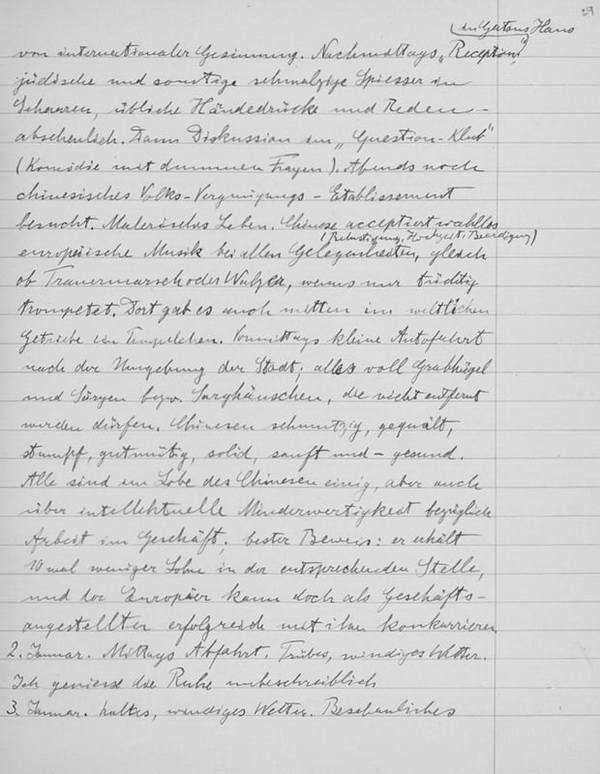 29
in Gattons Haus
von internationaler Gesinnung. Nachmittags „Reception",
jüdische und sonstige schmalzige Spiesser in
Scharen, übliche Händedrücke und Reden –
abscheulich. Dann Diskussion im „Question-Klub"
(Komödie mit dummen Fragen). Abends noch
chinesisches Volks-Vergnügungs-Etablissement
besucht. Malerisches Leben. Chinese acceptiert wahllos
(Belustigung, Hochzeit, Beerdigung)
europäische Musik bei allen Gelegenheiten, gleich
ob Trauermarsch oder Walzer, wenns nur tüchtig
trompetet. Dort gab es auch mitten im weltlichen
Getriebe ein Tempelchen. Vormittags kleine Autofahrt
nach der Umgebung der Stadt; alles voll Grabhügel
und Särgen bezw. Sarghäuschen, die nicht entfernt
werden dürfen. Chinesen schmutzig, gequält,
stumpf, gutmütig, solid, sanft und – gesund.
Alle sind im Lobe des Chinesen einig, aber auch
über intellektuelle Minderwertigkeit bezüglich
Arbeit im Geschäft; bester Beweis: er erhält
10 mal weniger Lohn in der entsprechenden Stelle,
und der Europäer kann doch als Geschäfts-
angestellter erfolgreich mit ihm konkurrieren
2. Januar. Mittags Abfahrt. Trübes, windiges Wetter.
Ich geniesse die Ruhe unbeschreiblich
3. Januar. kaltes, windiges Wetter. Beschauliches